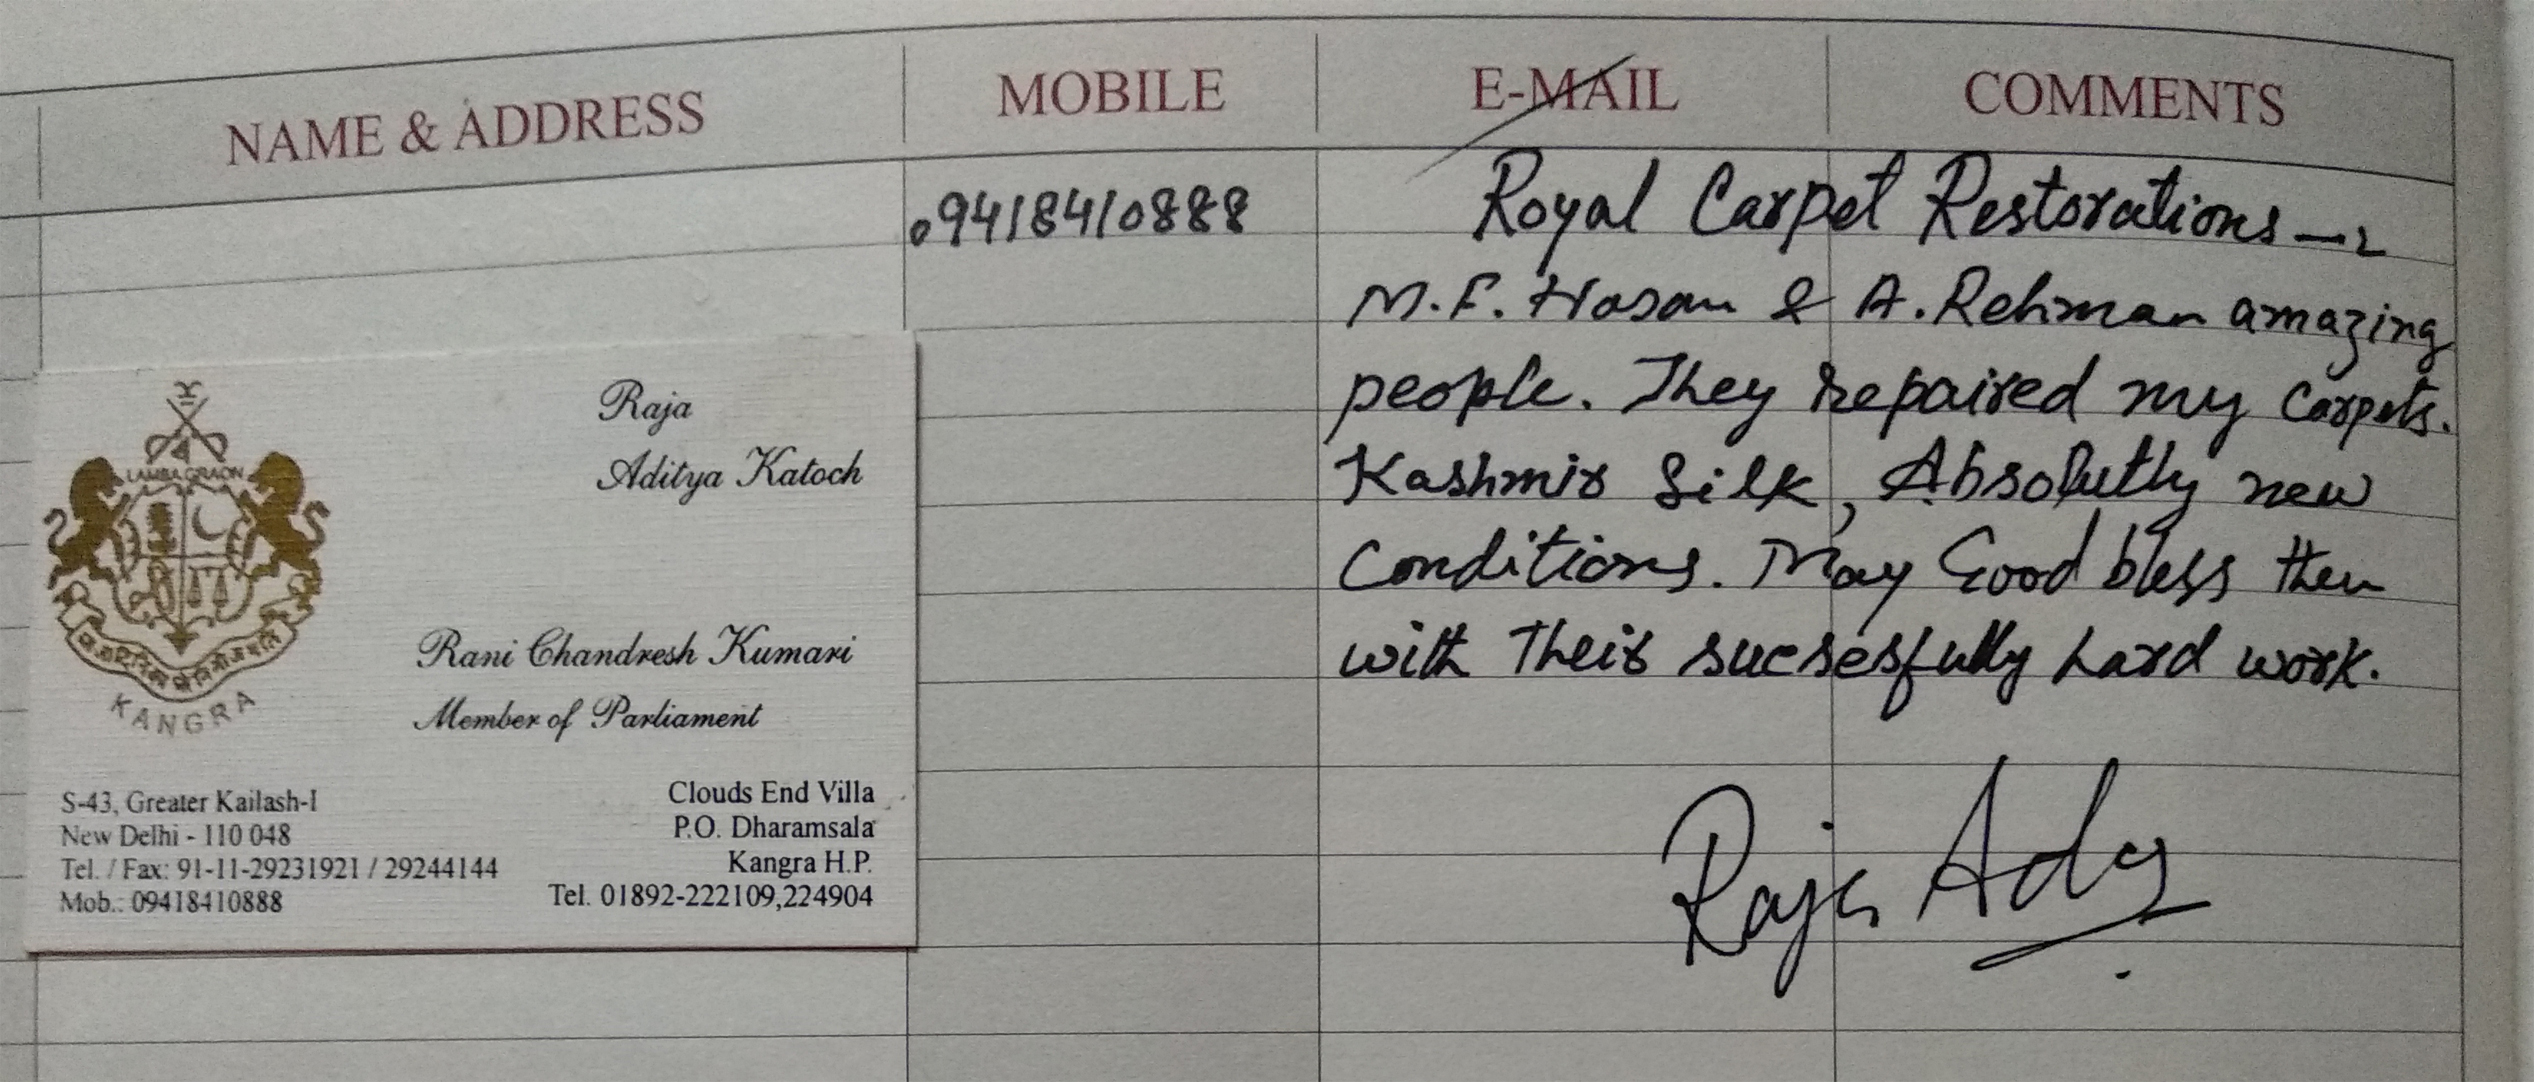 NAME & ADDRESS MOBILE E-MAIL COMMENTS
09418410888
Royal Carpet Restorations
M.F. Hasan & A. Rehman amazing
people. They repaired my carpets.
Kashmir Silk, Absolutly new
Conditions. May Good bless them
with Their sucsesfully hard work.
Raja
LAMBAGRAON
Raja
Aditya Katoch
Rani Chandresh Kumari
Member of Parliament
KANGRA
S-43, Greater Kailash-I
New Delhi - 110 048
Tel. / Fax: 91-11-29231921 / 29244144
Mob.: 09418410888
Clouds End Villa
P.O. Dharamsala
Kangra H.P.
Tel. 01892-222109,224904